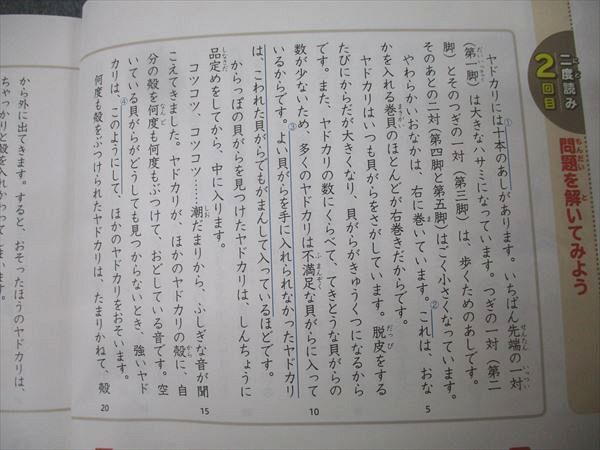 二度読み
2回目
問題を解いてみよう
ヤドカリには十本のあしがあります。いちばん先端の一対
（第一脚）は大きなハサミになっています。つぎの一対（第二
脚）とそのつぎの一対（第三脚）は、歩くためのあしです。
そのあとの二対（第四脚と第五脚）はごく小さくなっています。
やわらかいおなかは、右に巻いています。②これは、おな
かを入れる巻貝のほとんどが右巻きだからです。
ヤドカリはいつも貝がらをさがしています。脱皮をする
たびにからだが大きくなり、貝がらがきゅうくつになるから
です。また、ヤドカリの数にくらべて、てきとうな貝がらの
数が少ないため、多くのヤドカリは不満足な貝がらに入って
いるからです。③よい貝がらを手に入れられなかったヤドカリ
は、こわれた貝がらでもがまんして入っているほどです。
からっぽの貝がらを見つけたヤドカリは、しんちょうに
品定めをしてから、中に入ります。
コツコツ、コツコツ……潮だまりから、ふしぎな音が聞
こえてきました。ヤドカリが、ほかのヤドカリの殻に、自
分の殻を何度も何度もぶつけて、おどしている音です。空
いている貝がらがどうしても見つからないとき、強いヤド
カリは、④このようにして、ほかのヤドカリをおそいます。
何度も殻をぶつけられたヤドカリは、たまりかねて、殻
5
10
15
20
から外に出てきます。すると、おそったほうのヤドカリは、
ちゃっかりと殻を入れかわってしまいます。